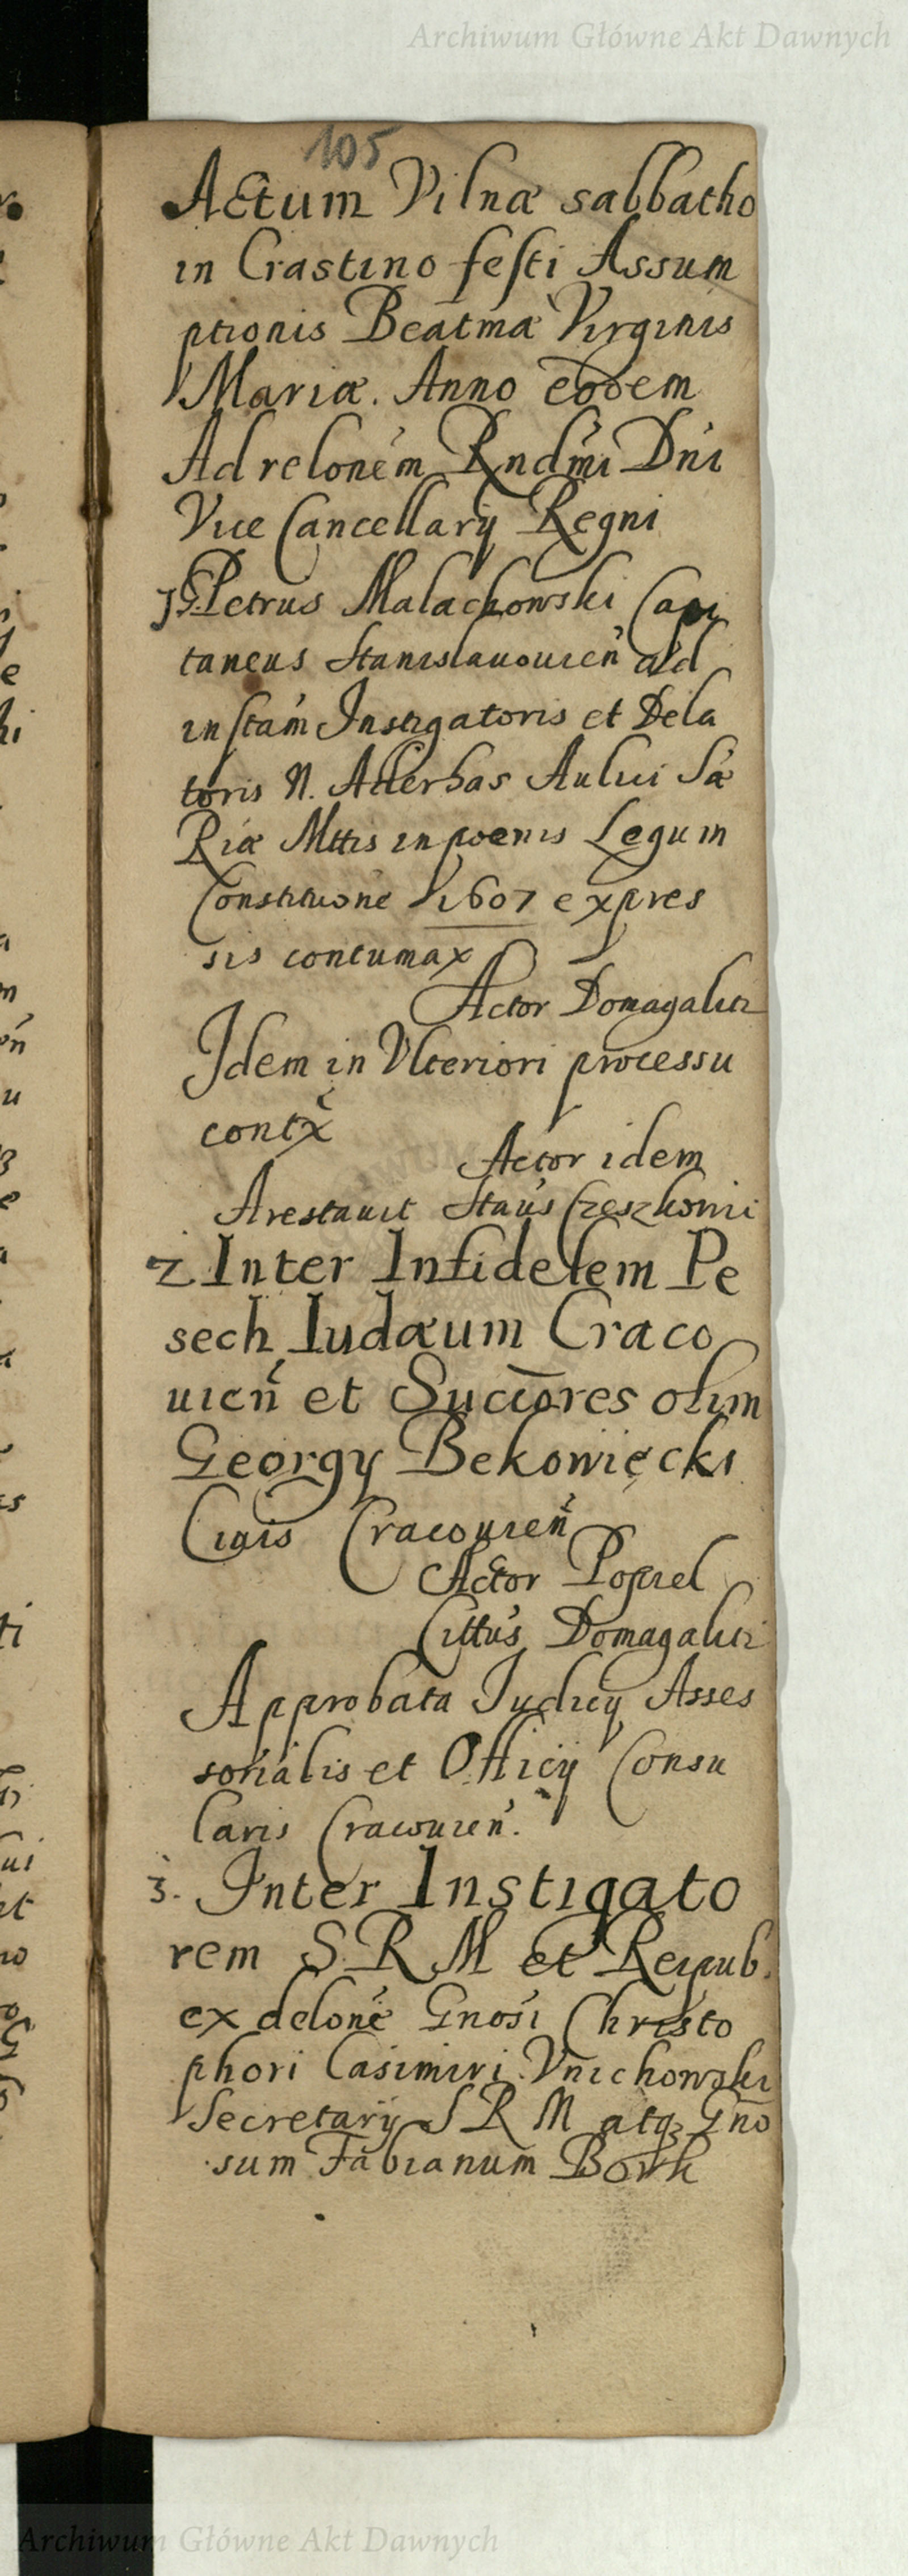 Archiwum Główne Akt Dawnych
105
Actum Vilnæ sabbatho
in Crastino festi Assum
ptionis Beatmæ Virginis
Mariæ. Anno eodem
Ad relonem Rndmi Dni
Vice Cancellarij Regni
1. G. Petrus Malachowski Capi
taneus Stanislauouien ad
instam Instigatoris et Dela
toris N. Atterhas Aulici Sæ
Riæ Mttis in poenis Legum
Constitutione 1607 expres
sis contumax
Actor Domagalicz
Idem in Vlteriori processu
contx
Actor idem
Arestauit Staus Czeszkowic
2. Inter Infidelem Pe
sech Iudæum Craco
uien et Succores olim
Georgy Bekowięcki
Ciuis Cracouien
Actor Popiel
Cittus Domagalicz
Approbata Judicij Asses
sorialis et Officij Consu
laris Cracouien.
3. Inter Instigato
rem S R M et Reipub.
ex delone Gnosi Christo
phori Casimiri Vnichowski
Secretarij S R M atq3 Gno
sum Fabianum Bork
Archiwum Główne Akt Dawnych